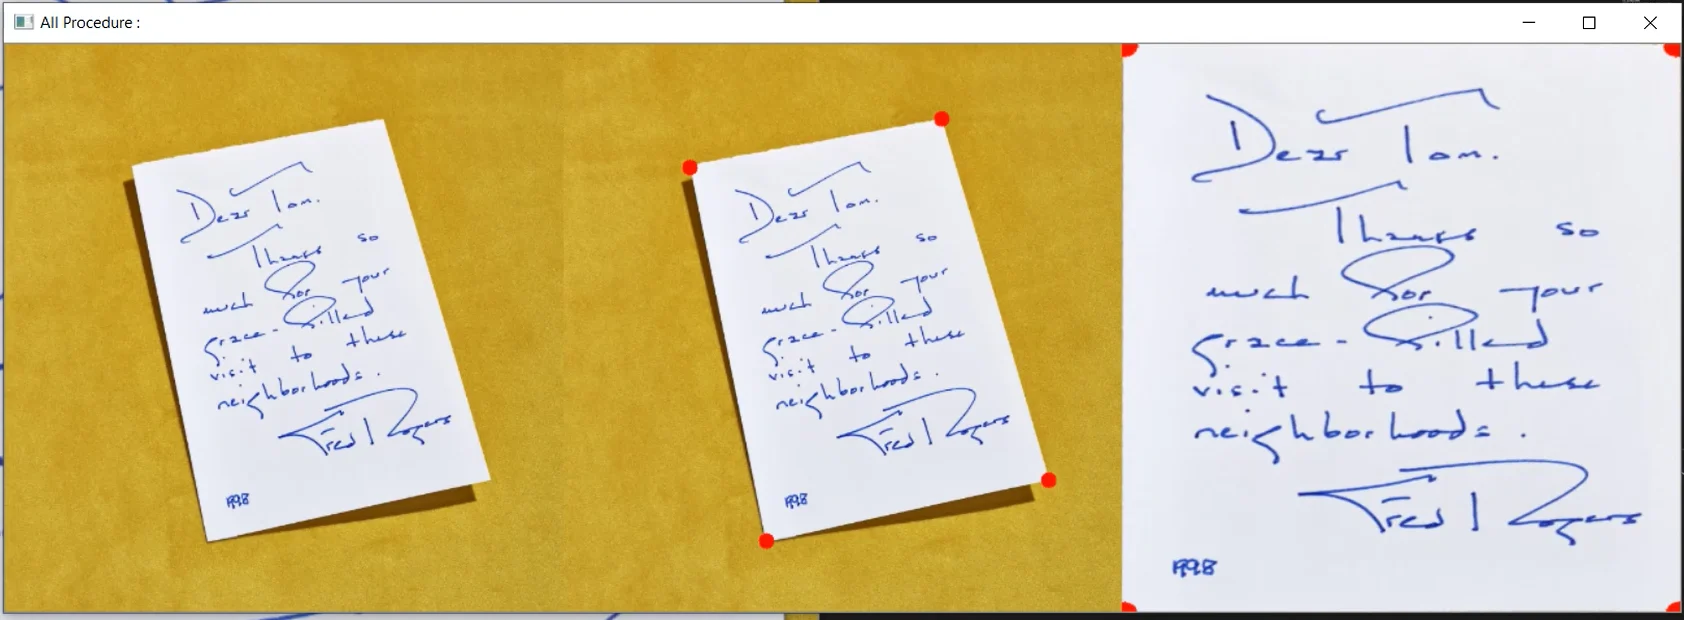 All Procedure :
Dear Tom.
Thanks so
much for your
grace-filled
visit to these
neighborhoods.
Fred Rogers
1998
Dear Tom.
Thanks so
much for your
grace-filled
visit to these
neighborhoods.
Fred Rogers
1998
Dear Tom.
Thanks so
much for your
grace-filled
visit to these
neighborhoods.
Fred Rogers
1998